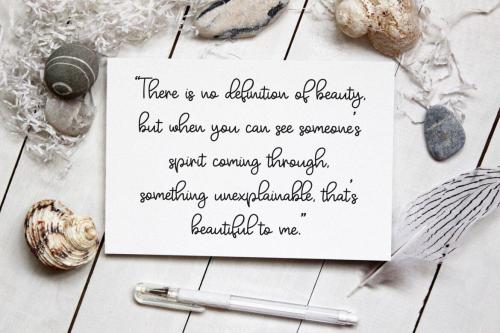 "There is no definition of beauty,
but when you can see someone's
spirit coming through,
something unexplainable, that's
beautiful to me."